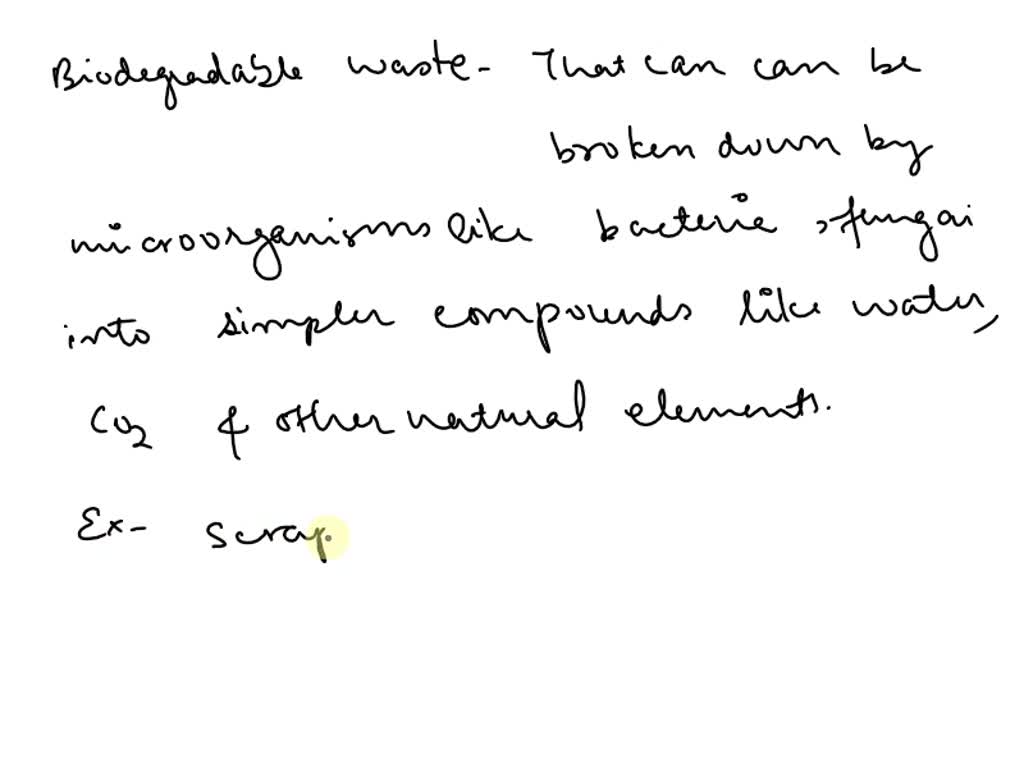 Biodegradable waste - That can can be
broken down by
microorganisms like bacterie, fungai
into simpler compounds like water,
CO2 & other natural elements.
Ex- scrap